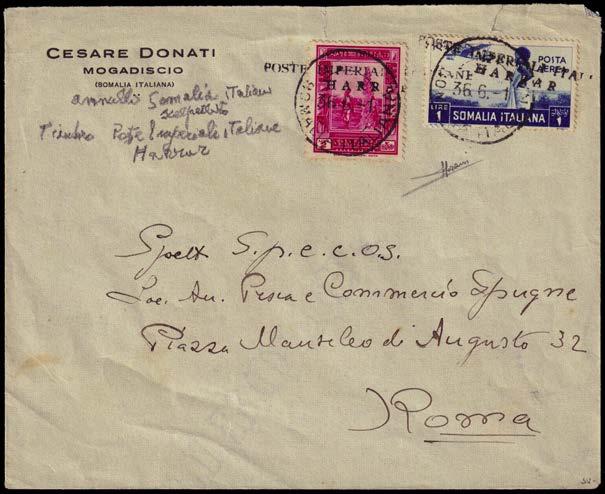 CESARE DONATI
MOGADISCIO
(SOMALIA ITALIANA)
annulli Somalia italiana
Timbro Poste Imperiale italiane
Harrar
POSTE IMPERIALI
HARR
36.6.
POSTE IMPERIALI ITAL
HARRAR
36.6. 21
POSTA
AEREA
LIRE 1 SOMALIA ITALIANA 1
Spett S.p.e.c.os.
Soc. An. Pesca e Commercio Spugne
Piazza Mausoleo di Augusto 32
Roma